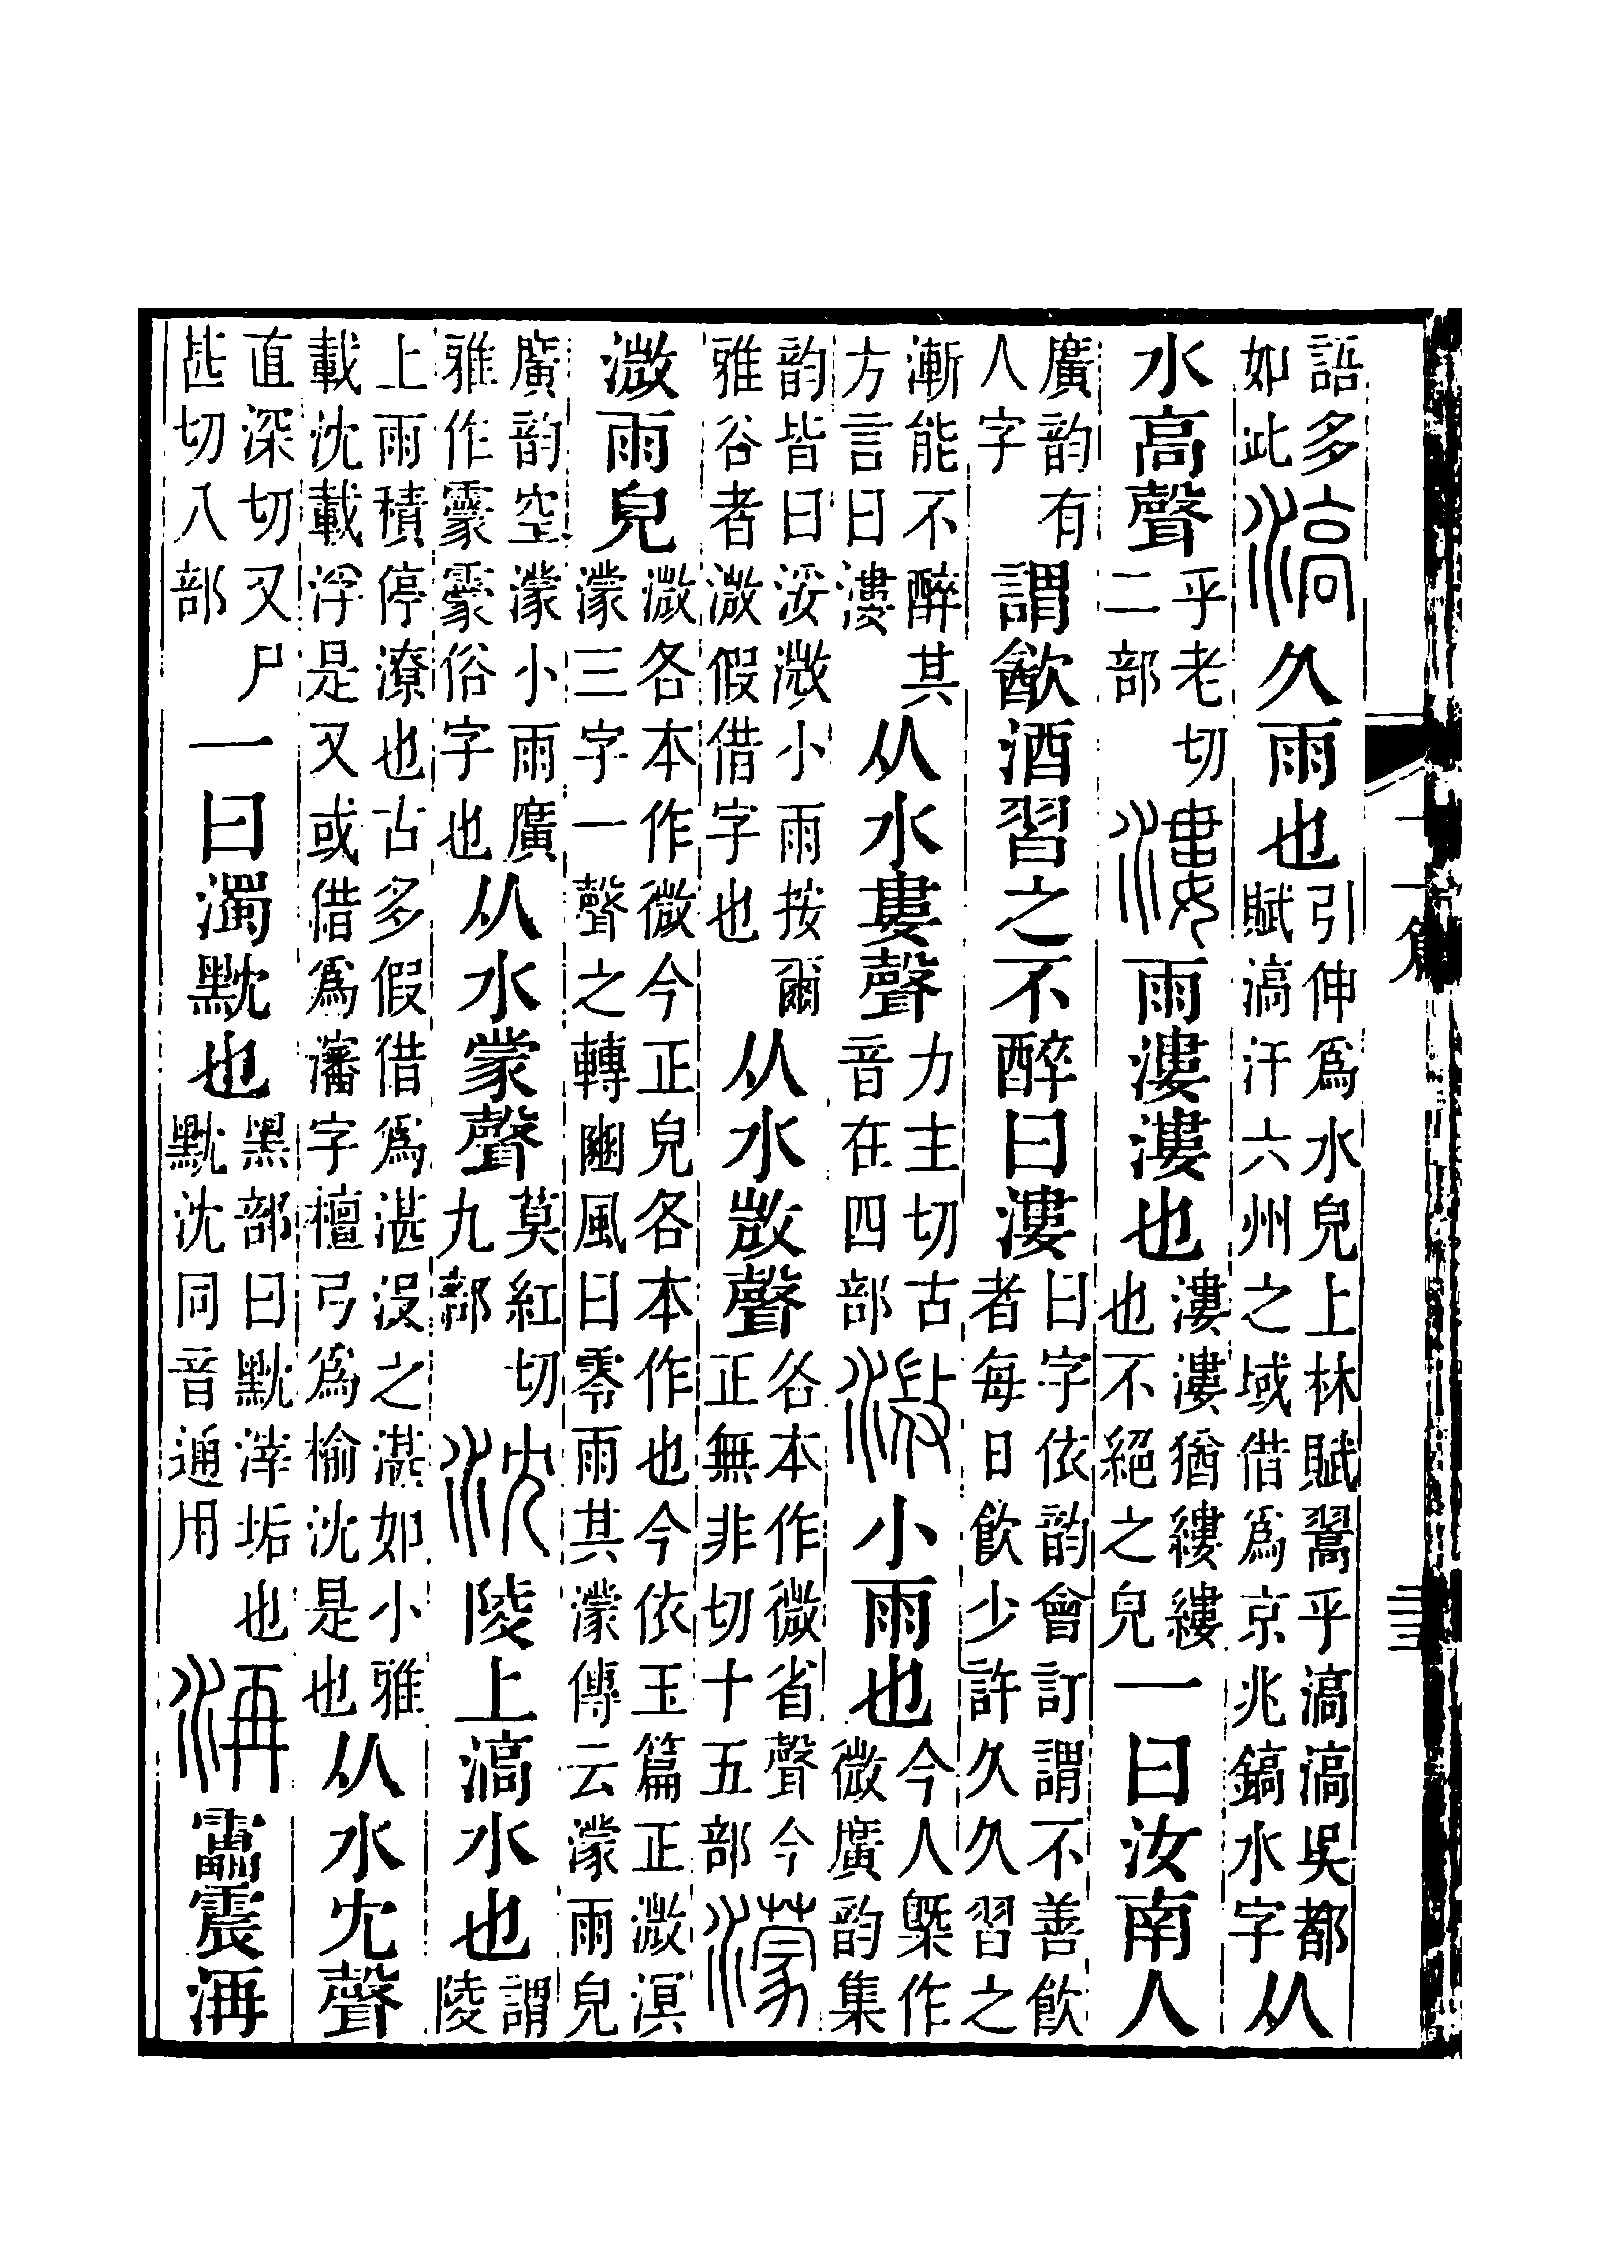 語多如此滈久雨也引伸爲水皃上林賦翯乎滈滈吳都賦滈汗六州之域借爲京兆鎬水字从
水高聲乎老切二部漊雨漊漊也漊漊猶縷縷也不絕之皃一曰汝南人
廣韵有人字謂㱃酒習之不醉曰漊曰字依韵會訂謂不善飮者每日飮少許久久習之
漸能不醉其方言曰漊从水婁聲力主切古音在四部溦小雨也今人槩作微廣韵集
韵皆曰浽溦小雨按爾雅谷者溦假借字也从水𢼸聲各本作微省聲今正無非切十五部濛
溦雨皃溦各本作微今正皃各本作也今依玉篇正溦溟濛三字一聲之轉豳風曰零雨其濛傳云濛雨皃
廣韵空濛小雨廣雅作霥霥俗字也从水蒙聲莫紅切九部沈陵上滈水也謂陵
上雨積停潦也古多假借爲湛沒之湛如小雅載沈載浮是又或借爲瀋字檀弓爲榆沈是也从水冘聲
直深切又尸甚切八部一曰濁黕也黑部曰黕滓垢也黕沈同音通用洅靁震洅